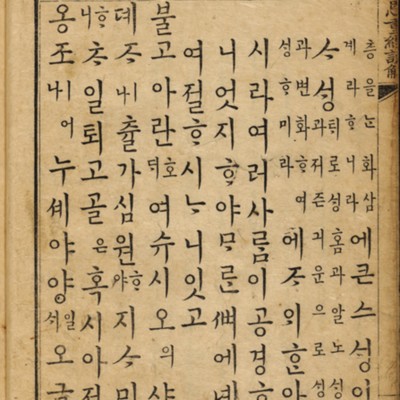 층을눈화삼
계라ᄒᆞ니라
에큰스성이
ᄉᆞ성
로성홈과알노성
과저즌긔운으로성
과변화ᄒᆞ여
성ᄒᆞ미라
에ᄌᆞ의ᄒᆞᆫ아
시라여러사ᄅᆞᆷ이공경ᄒᆞ
니엇지ᄒᆞ야ᄆᆞᄅᆞᆫ에녜
여졀ᄒᆞ시ᄂᆞ니잇고
불고아란여슈시오의샤
뎨ᄌᆞ나츌가심원ᄒᆞ야지ᄉᆞ미
일퇴고골은혹시아
옹조어누셰야양오